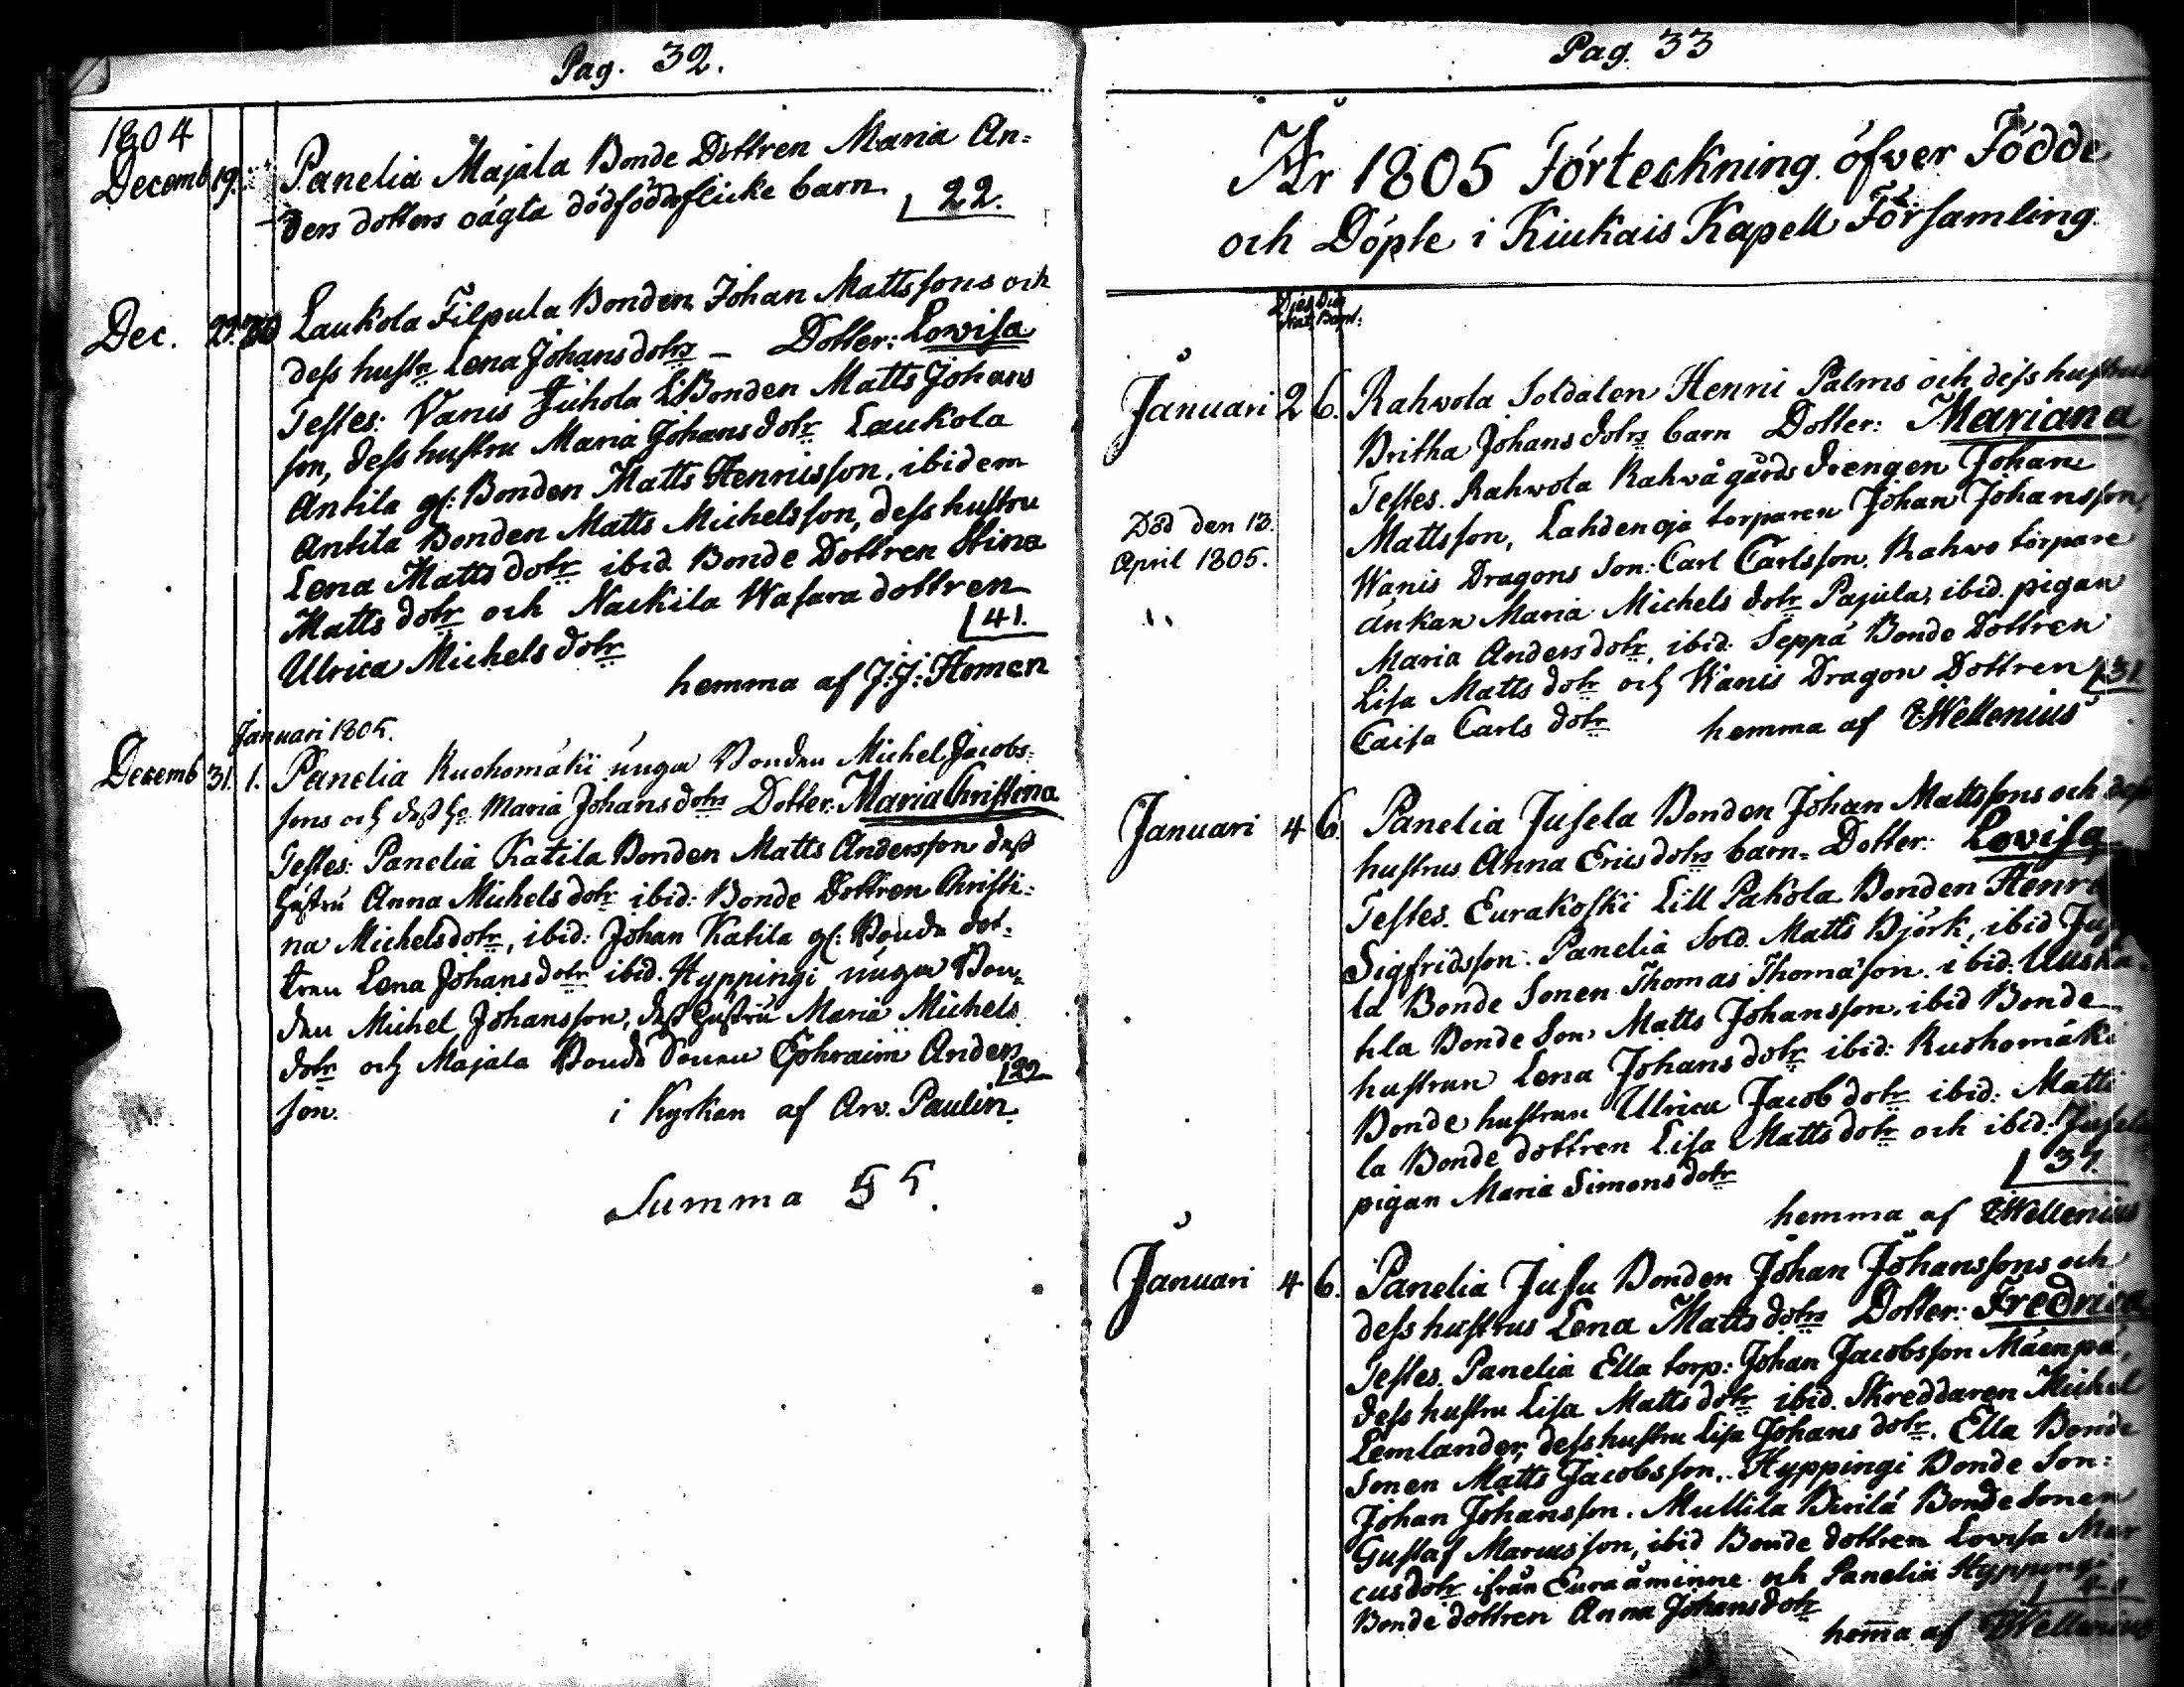 Pag. 32.
1804
Decemb 19. Panelia Majala Bonde Dottren Maria An=
ders dotters oägta dödfödde flicke barn 22.
Dec. 27. 30 Laukola Filpula Bonden Johan Mattssons och
dess hustr Lena Johansdotrs – Dotter: Lovisa
Testes: Vanis Juhola Bonden Matts Johans
son, dess hustru Maria Johansdotr Laukola
Antila gl: Bonden Matts Henricsson, ibidem
Antila Bonden Matts Michelsson, dess hustru
Lena Mattsdotr ibid. Bonde Dottren Stina
Matts dotr och Nackila Wasara dottren
Ulrica Michelsdotr 41.
hemma af J:J: Homen
Januari 1805.
Decemb 31. 1. Panelia Ruohomäki unga Bonden Michel Jacobs=
sons och dess ho Maria Johansdotrs Dotter: Maria Christina
Testes: Panelia Katila Bonden Matts Andersson dess
hustru Anna Michelsdotr ibid: Bonde Dottren Christi=
na Michelsdotr, ibid: Johan Katila gl: Bonde dot=
tren Lena Johansdotr ibid. Hyppingi unga Bon=
den Michel Johansson, dess hustru Maria Michels
dotr och Majala Bonde Sonen Ephraim Anders
son. 29
i Kyrkan af Arv. Paulin
Summa 55.
Pag. 33
År 1805 Förteckning öfver Födde
och Döpte i Kiukais Kapell Församling
Dies Nat. Dies Bapt:
Januari 2 6. Rahvola Soldaten Henric Palms och dess hustrus
Britha Johansdotrs barn Dotter: Mariana
Testes. Rahvola Rahvågårds Drengen Johan
Mattsson, Lahdenoja torparen Johan Johansson,
Död den 13.
April 1805.
Wanis Dragons Son: Carl Carlsson. Rahvo torpare
änkan Maria Michels dotr Pajula, ibid. pigan
Maria Andersdotr, ibid. Seppä Bonde Dottren
Lisa Matts dotr och Wanis Dragon Dottren 31
Caisa Carls dotr hemma af Wellenius
Januari 4 6. Panelia Jusela Bonden Johan Mattssons och dess
hustrus Anna Ericsdotrs barn= Dotter: Lovisa
Testes. Eurakoski Lill Pakola Bonden Henric
Sigfridsson. Panelia Sold. Matts Björk, ibid Juse
la Bonde Sonen Thomas Thomason. ibid: Uuski=
tila Bonde Son Matts Johansson. ibid Bonde
hustrun Lena Johansdotr ibid: Ruohomäki
Bonde hustrun Ulrica Jacobdotr ibid: Matti
la Bonde dottren Lisa Mattsdotr och ibid. Jusela
pigan Maria Simonsdotr 37.
hemma af Wellenius
Januari 4 6. Panelia Jusu Bonden Johan Johanssons och
dess hustrus Lena Mattsdotrs Dotter: Fredrica
Testes. Panelia Ella torp: Johan Jacobsson Mäenpä,
dess hustru Lisa Mattsdotr ibid. Skreddaren Michel
Lemlander, dess hustru Lisa Johans dotr. Ella Bonde
Sonen Matts Jacobsson. Hyppingi Bonde Son:
Johan Johansson. Mullila Birilä Bonde Sonen
Gustaf Marcusson, ibid Bonde dottren Lovisa Mar
cusdotr ifrån Euraåminne och Panelia Hyppingi
Bonde dottren Anna Johansdotr
hemma af Wellenius